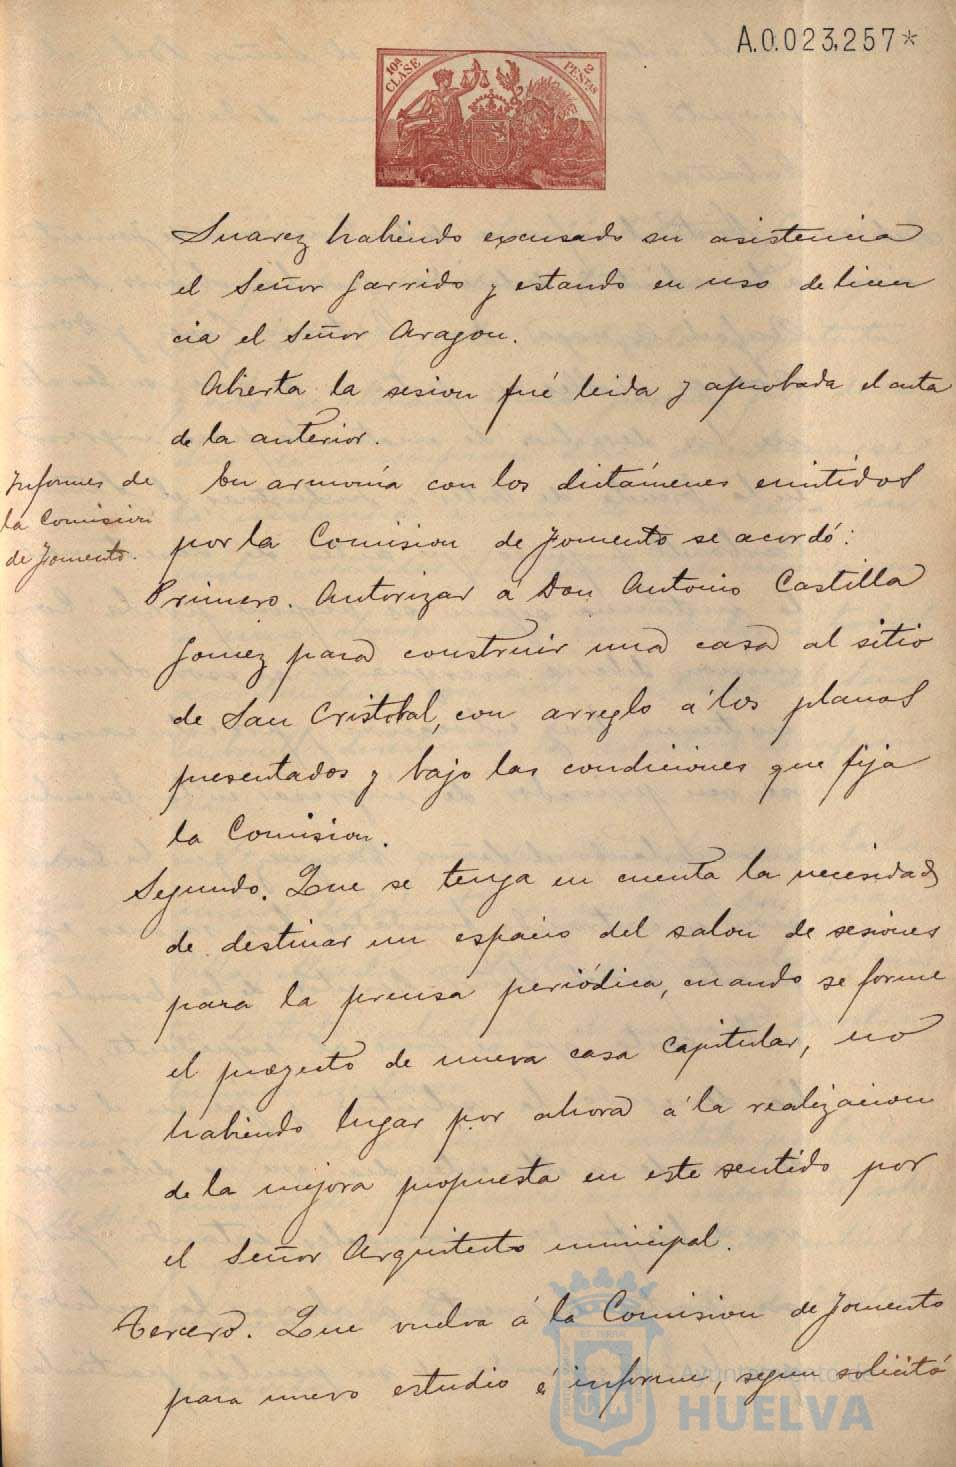 A.0.023,257*
10ª CLASE
2 PESTAS
Suarez habiendo excusado su asistencia
el Señor Garrido y estando en uso de licen
cia el Señor Aragon.
Abierta la sesion fué leida y aprobada el acta
de la anterior.
Informes de
la Comision
de Fomento.
En armonía con los dictámenes emitidos
por la Comision de Fomento se acordó:
Primero. Autorizar á Don Antonio Castilla
Gomez para construir una casa al sitio
de San Cristobal, con arreglo á los planos
presentados y bajo las condiciones que fija
la Comision.
Segundo. Que se tenga en cuenta la necesidad
de destinar un espacio del salon de sesiones
para la prensa periódica, cuando se forme
el proyecto de nueva casa capitular, no
habiendo lugar por ahora á la realizacion
de la mejora propuesta en este sentido por
el Señor Arquitecto municipal.
Tercero. Que vuelva á la Comision de Fomento
para nuevo estudio é informe, segun solicitó
Ayuntamiento de
HUELVA